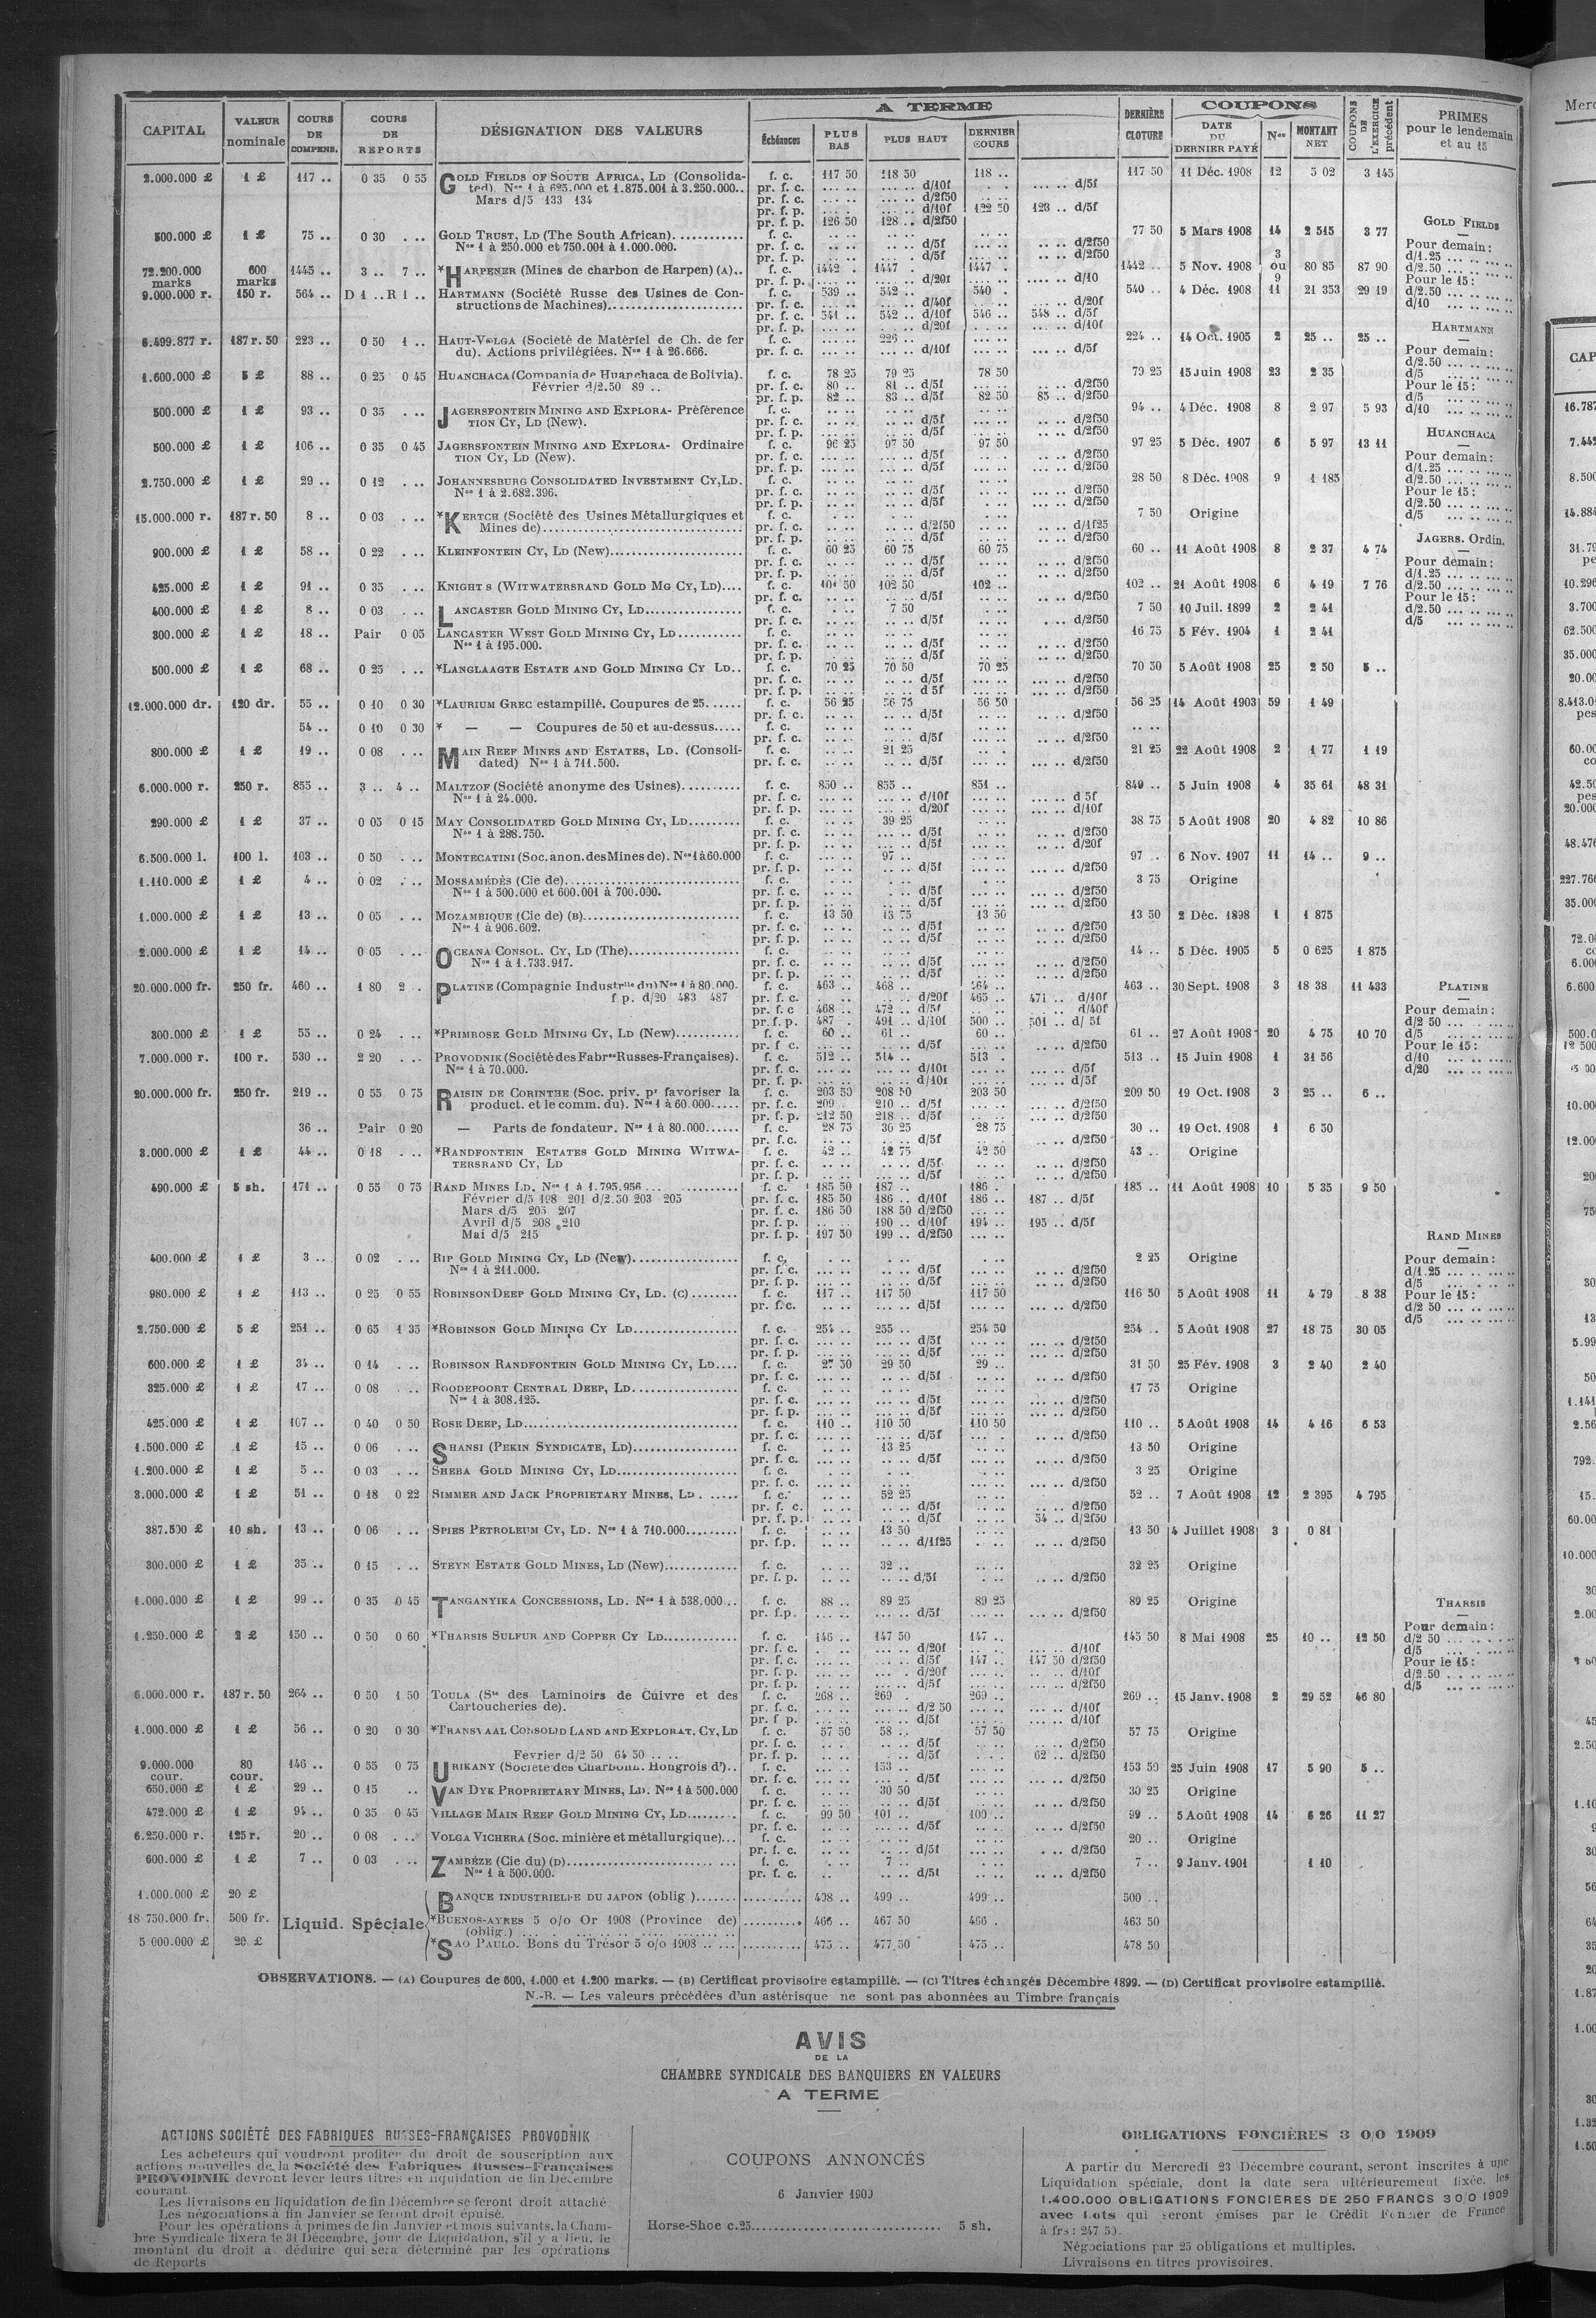 A TERME
COUPONS
CAPITAL
VALEUR nominale
COURS DE COMPENS.
COURS DE REPORTS
DÉSIGNATION DES VALEURS
Échéances
PLUS BAS
PLUS HAUT
DERNIER COURS
DERNIÈRE CLOTURE
DATE DU DERNIER PAYÉ
Nos
MONTANT NET
COUPONS DE L'EXERCICE précédent
PRIMES pour le lendemain et au 15
2.000.000 £ 1 £ 117 .. 0 35 0 55 GOLD FIELDS OF SOUTH AFRICA, LD (Consolida- f. c. 117 50 118 50 118 .. 117 50 11 Déc. 1908 12 5 02 3 145
ted). Nos 1 à 625.000 et 1.875.001 à 3.250.000.. pr. f. c. d/10f d/5f
Mars d/5 133 134 pr. f. c. d/2f50
pr. f. p. d/10f 122 50 123 .. d/5f
pr. f. p. 126 50 128 .. d/2f50
500.000 £ 1 £ 75 .. 0 30 . .. GOLD TRUST, LD (The South African) f. c. 77 50 5 Mars 1908 14 2 515 3 77
Nos 1 à 250.000 et 750.001 à 1.000.000. pr. f. c. d/5f d/2f50
pr. f. p. d/5f d/2f50
72.200.000 marks 600 marks 1445 .. 3 .. 7 .. *HARPENER (Mines de charbon de Harpen) (A).. f. c. 1442 . 1447 . 1447 . 1442 .. 5 Nov. 1908 3 ou 9 80 85 87 90
pr. f. p. d/20f d/10
9.000.000 r. 150 r. 564 .. D 1 .. R 1 .. HARTMANN (Société Russe des Usines de Con- f. c. 539 .. 542 .. 540 . 540 .. 4 Déc. 1908 11 21 353 29 19
structions de Machines) pr. f. c. d/40f d/20f
pr. f. c. 541 .. 542 .. d/10f 546 .. 548 .. d/5f
pr. f. p. d/20f d/10f
6.499.877 r. 187 r. 50 223 .. 0 50 1 .. HAUT-VOLGA (Société de Matériel de Ch. de fer f. c. 226 .. 224 .. 14 Oct. 1905 2 25 .. 25 ..
du). Actions privilégiées. Nos 1 à 26.666. pr. f. c. d/10f d/5f
1.600.000 £ 5 £ 88 .. 0 25 0 45 HUANCHACA (Compania de Huanchaca de Bolivia). f. c. 78 25 79 25 78 50 79 25 15 Juin 1908 23 2 35
Février d/2.50 89 .. pr. f. c. 80 .. 81 .. d/5f d/2f50
pr. f. p. 82 .. 83 .. d/5f 82 50 85 .. d/2f50
500.000 £ 1 £ 93 .. 0 35 . .. JAGERSFONTEIN MINING AND EXPLORA- Préférence f. c. 94 .. 4 Déc. 1908 8 2 97 5 93
TION CY, LD (New). pr. f. c. d/5f d/2f50
pr. f. p. d/5f d/2f50
500.000 £ 1 £ 106 .. 0 35 0 45 JAGERSFONTEIN MINING AND EXPLORA- Ordinaire f. c. 96 25 97 50 97 50 97 25 5 Déc. 1907 6 5 97 13 11
TION CY, LD (New). pr. f. c. d/5f d/2f50
pr. f. p. d/5f d/2f50
2.750.000 £ 1 £ 29 .. 0 12 . .. JOHANNESBURG CONSOLIDATED INVESTMENT CY, LD. f. c. 28 50 8 Déc. 1908 9 1 185
Nos 1 à 2.682.396. pr. f. c. d/5f d/2f50
pr. f. p. d/5f d/2f50
15.000.000 r. 187 r. 50 8 .. 0 03 . .. *KERTCH (Société des Usines Métallurgiques et f. c. 7 50 Origine
Mines de) pr. f. c. d/2f50 d/1f25
pr. f. p. d/5f d/2f50
900.000 £ 1 £ 58 .. 0 22 . .. KLEINFONTEIN CY, LD (New) f. c. 60 25 60 75 60 75 60 .. 11 Août 1908 8 2 37 4 74
pr. f. c. d/5f d/2f50
pr. f. p. d/5f d/2f50
425.000 £ 1 £ 91 .. 0 35 KNIGHT S (WITWATERSRAND GOLD MG CY, LD).... f. c. 101 50 102 50 102 .. 102 .. 21 Août 1908 6 4 19 7 76
pr. f. c. d/5f d/2f50
400.000 £ 1 £ 8 .. 0 03 . .. LANCASTER GOLD MINING CY, LD f. c. 7 50 7 50 10 Juil. 1899 2 2 41
pr. f. c. d/5f d/2f50
300.000 £ 1 £ 18 .. Pair 0 05 LANCASTER WEST GOLD MINING CY, LD f. c. 16 75 5 Fév. 1904 1 2 41
Nos 1 à 195.000. pr. f. c. d/5f d/2f50
pr. f. p. d/5f d/2f50
500.000 £ 1 £ 68 .. 0 25 . .. *LANGLAAGTE ESTATE AND GOLD MINING CY LD.. f. c. 70 25 70 50 70 25 70 50 5 Août 1908 25 2 50 5 ..
pr. f. c. d/5f d/2f50
pr. f. p. d 5f d/2f50
12.000.000 dr. 120 dr. 55 .. 0 10 0 30 *LAURIUM GREC estampillé. Coupures de 25 f. c. 56 25 56 75 56 50 56 25 14 Août 1903 59 1 49
pr. f. c. d/5f d/2f50
54 .. 0 10 0 30 * — — Coupures de 50 et au-dessus..... f. c.
pr. f. c. d/5f d/2f50
800.000 £ 1 £ 19 .. 0 08 . .. MAIN REEF MINES AND ESTATES, LD. (Consoli- f. c. 21 25 21 25 22 Août 1908 2 1 77 1 19
dated) Nos 1 à 711.500. pr. f. c. d/5f d/2f50
6.000.000 r. 250 r. 855 .. 3 .. 4 .. MALTZOF (Société anonyme des Usines) f. c. 850 .. 855 .. 851 .. 849 .. 5 Juin 1908 4 35 61 48 31
Nos 1 à 24.000. pr. f. c. d/10f d 5f
pr. f. p. d/20f d/10f
290.000 £ 1 £ 37 .. 0 05 0 15 MAY CONSOLIDATED GOLD MINING CY, LD f. c. 39 25 38 75 5 Août 1908 20 4 82 10 86
Nos 1 à 288.750. pr. f. c. d/5f d/2f50
pr. f. p. d/5f d/20f
6.500.000 l. 100 l. 103 .. 0 50 . .. MONTECATINI (Soc. anon. des Mines de). Nos 1 à 60.000 f. c. 97 .. 97 .. 6 Nov. 1907 11 14 .. 9 ..
pr. f. p. d/5f d/2f50
1.110.000 £ 1 £ 4 .. 0 02 . .. MOSSAMÉDÈS (Cie de) f. c. 3 75 Origine
Nos 1 à 500.000 et 600.001 à 700.000. pr. f. c. d/5f d/2f50
pr. f. p. d/5f d/2f50
1.000.000 £ 1 £ 13 .. 0 05 . .. MOZAMBIQUE (Cie de) (B) f. c. 13 50 13 75 13 50 13 50 2 Déc. 1898 1 1 875
Nos 1 à 906.602. pr. f. c. d/5f d/2f50
pr. f. p. d/5f d/2f50
2.000.000 £ 1 £ 14 .. 0 05 . .. OCEANA CONSOL. CY, LD (The) f. c. 14 .. 5 Déc. 1905 5 0 625 1 875
Nos 1 à 1.733.917. pr. f. c. d/5f d/2f50
pr. f. p. d/5f d/2f50
20.000.000 fr. 250 fr. 460 .. 1 80 2 .. PLATINE (Compagnie Industrlle du) Nos 1 à 80.000. f. c. 463 .. 468 .. 464 .. 463 .. 30 Sept. 1908 3 18 38 11 433
f p. d/20 483 487 pr. f. c. d/20f 465 .. 471 .. d/10f
pr. f. c 468 .. 472 .. d/5f d/40f
pr. f. p. 487 . 491 .. d/10f 500 .. 501 .. d/ 5f
300.000 £ 1 £ 55 .. 0 24 . .. *PRIMROSE GOLD MINING CY, LD (New) f. c. 60 .. 61 .. 60 .. 61 .. 27 Août 1908 20 4 75 10 70
pr. f c. d/5f d/2f50
7.000.000 r. 100 r. 530 .. 2 20 . .. PROVODNIK (Société des Fabres Russes-Françaises). f. c. 512 .. 514 .. 513 . 513 .. 15 Juin 1908 1 31 56
Nos 1 à 70.000. pr. f. c. d/10f d/5f
pr. f. p. d/10f d/5f
20.000.000 fr. 250 fr. 219 .. 0 55 0 75 RAISIN DE CORINTHE (Soc. priv. pr favoriser la f. c. 203 50 208 50 203 50 209 50 19 Oct. 1908 3 25 .. 6 ..
product. et le comm. du). Nos 1 à 60.000 pr. f. c. 209 . 210 .. d/5f d/2f50
pr. f. p. 212 50 218 .. d/5f d/2f50
36 .. Pair 0 20 — Parts de fondateur. Nos 1 à 80.000 f. c. 28 75 30 25 28 75 30 .. 19 Oct. 1908 1 6 50
pr. f. c. d/5f d/2f50
3.000.000 £ 1 £ 44 .. 0 18 . .. *RANDFONTEIN ESTATES GOLD MINING WITWA- f. c. 42 .. 42 75 42 50 43 .. Origine
TERSRAND CY, LD pr. f. c. d/5f d/2f50
pr. f. p. d/5f d/2f50
490.000 £ 5 sh. 171 .. 0 55 0 75 RAND MINES LD. Nos 1 à 1.795.956 f. c. 185 50 187 .. 186 . 185 .. 11 Août 1908 10 5 35 9 50
Février d/5 198 201 d/2.50 203 205 pr. f. c. 185 50 186 .. d/10f 186 .. 187 .. d/5f
Mars d/5 205 207 pr. f. c. 186 50 188 50 d/2f50
Avril d/5 208 210 pr. f. p. 190 .. d/10f 194 .. 195 .. d/5f
Mai d/5 215 pr. f. p. 197 50 199 .. d/2f50
400.000 £ 1 £ 3 .. 0 02 . .. RIP GOLD MINING CY, LD (New) f. c. 2 25 Origine
Nos 1 à 211.000. pr. f. c. d/5f d/2f50
pr. f. p. d/5f d/2f50
980.000 £ 1 £ 113 .. 0 25 0 55 ROBINSON DEEP GOLD MINING CY, LD. (C) f. c. 117 .. 117 50 117 50 116 50 5 Août 1908 11 4 79 8 38
pr. f. c. d/5f d/2f50
2.750.000 £ 5 £ 251 .. 0 65 1 35 *ROBINSON GOLD MINING CY LD f. c. 254 .. 255 .. 254 50 254 .. 5 Août 1908 27 18 75 30 05
pr. f. c. d/5f d/2f50
pr. f. p. d/5f d/2f50
600.000 £ 1 £ 34 .. 0 14 . .. ROBINSON RANDFONTEIN GOLD MINING CY, LD.... f. c. 27 50 29 50 29 .. 31 50 25 Fév. 1908 3 2 40 2 40
pr. f. c. d/5f d/2f50
325.000 £ 1 £ 17 .. 0 08 . .. ROODEPOORT CENTRAL DEEP, LD f. c. 17 75 Origine
Nos 1 à 308.125. pr. f. c. d/5f d/2f50
pr. f. p. d/5f d/2f50
425.000 £ 1 £ 107 .. 0 40 0 50 ROSE DEEP, LD f. c. 110 .. 110 50 110 50 110 .. 5 Août 1908 14 4 16 6 53
pr. f. c. d/5f d/2f50
1.500.000 £ 1 £ 15 .. 0 06 . .. SHANSI (PEKIN SYNDICATE, LD) f. c. 13 25 13 50 Origine
pr. f. c. d/5f d/2f50
1.200.000 £ 1 £ 5 .. 0 03 . .. SHEBA GOLD MINING CY, LD f. c. 3 25 Origine
pr. f. c. d/2f50
3.000.000 £ 1 £ 51 .. 0 18 0 22 SIMMER AND JACK PROPRIETARY MINES, LD f. c. 52 25 52 .. 7 Août 1908 12 2 395 4 795
pr. f. c. d/5f d/2f50
pr. f. p. d/5f 54 .. d/2f50
387.500 £ 10 sh. 13 .. 0 06 . .. SPIES PETROLEUM CY, LD. Nos 1 à 710.000 f. c. 13 50 13 50 4 Juillet 1908 3 0 81
pr. f.p. d/1f25 d/2f50
300.000 £ 1 £ 35 .. 0 15 . .. STEYN ESTATE GOLD MINES, LD (New) f. c. 32 .. 32 25 Origine
pr. f. p. d/5f d/2f50
1.000.000 £ 1 £ 99 .. 0 35 0 45 TANGANYIKA CONCESSIONS, LD. Nos 1 à 538.000 f. c. 88 .. 89 25 89 25 89 25 Origine
pr. f.p. d/5f d/2f50
1.250.000 £ 2 £ 150 .. 0 50 0 60 *THARSIS SULFUR AND COPPER CY LD f. c. 146 .. 147 50 147 .. 145 50 8 Mai 1908 25 10 .. 12 50
pr. f. c. d/20f d/10f
pr. f. c. d/5f 147 .. 147 50 d/2f50
pr. f. p. d/20f d/10f
pr. f. p. d/5f d/2f50
6.000.000 r. 187 r. 50 264 .. 0 50 1 50 TOULA (Sté des Laminoirs de Cuivre et des f. c. 268 .. 269 . 269 .. 269 .. 15 Janv. 1908 2 29 52 46 80
Cartoucheries de). pr. f. c. d/2 50 d/10f
pr. f p. d/5f d/10f
1.000.000 £ 1 £ 56 .. 0 20 0 30 *TRANSVAAL CONSOLID LAND AND EXPLORAT. CY, LD f. c. 57 50 58 .. 57 50 57 75 Origine
pr. f. c. d/5f d/2f50
Février d/2 50 64 50 .. .. pr. f. p. d/5f 62 .. d/2f50
9.000.000 cour. 80 cour. 146 .. 0 55 0 75 URIKANY (Société des Charbonn. Hongrois d').. f. c. 153 .. 153 50 25 Juin 1908 17 5 90 5 ..
pr. f. c. d/5f d/2f50
650.000 £ 1 £ 29 .. 0 15 .. VAN DYK PROPRIETARY MINES, LD. Nos 1 à 500.000 f. c. 30 50 30 25 Origine
pr. f. c. d/5f d/2f50
472.000 £ 1 £ 94 .. 0 35 0 45 VILLAGE MAIN REEF GOLD MINING CY, LD f. c. 99 50 101 .. 100 .. 99 .. 5 Août 1908 14 6 26 11 27
pr. f. c. d/5f d/2f50
6.250.000 r. 125 r. 20 .. 0 08 . .. VOLGA VICHERA (Soc. minière et métallurgique)... f. c. 20 .. Origine
pr. f. c. d/5f d/2f50
600.000 £ 1 £ 7 .. 0 03 . .. ZAMBÈZE (Cie du) (D) f. c. 7 .. 7 .. 9 Janv. 1901 1 10
Nos 1 à 500.000. pr. f. c. d/5f d/2f50
1.000.000 £ 20 £ BANQUE INDUSTRIELLE DU JAPON (oblig ) 498 .. 499 .. 499 .. 500 ..
18 750.000 fr. 500 fr. Liquid. Spéciale *BUENOS-AYRES 5 o/o Or 1908 (Province de) 466 .. 467 50 466 . 463 50
(oblig.)
5 000.000 £ 20 £ *SAO PAULO. Bons du Trésor 5 o/o 1908 475 .. 477 50 475 .. 478 50
GOLD FIELDS
Pour demain :
d/1.25
d/2.50
Pour le 15 :
d/2.50
d/10
HARTMANN
Pour demain :
d/2.50
d/5
Pour le 15 :
d/5
d/10
HUANCHACA
Pour demain :
d/1.25
d/2.50
Pour le 15 :
d/2.50
d/5
JAGERS. Ordin.
Pour demain :
d/1.25
d/2.50
Pour le 15 :
d/2.50
d/5
PLATINE
Pour demain :
d/2 50
d/5
Pour le 15 :
d/10
d/20
RAND MINES
Pour demain :
d/1.25
d/5
Pour le 15 :
d/2 50
d/5
THARSIS
Pour demain :
d/2 50
d/5
Pour le 15 :
d/2.50
d/5
OBSERVATIONS. — (A) Coupures de 600, 1.000 et 1.200 marks. — (B) Certificat provisoire estampillé. — (C) Titres échangés Décembre 1899. — (D) Certificat provisoire estampillé.
N.-B. — Les valeurs précédées d'un astérisque ne sont pas abonnées au Timbre français
AVIS
DE LA
CHAMBRE SYNDICALE DES BANQUIERS EN VALEURS
A TERME
ACTIONS SOCIÉTÉ DES FABRIQUES RUSSES-FRANÇAISES PROVODNIK
Les acheteurs qui voudront profiter du droit de souscription aux
actions nouvelles de la Société des Fabriques Russes-Françaises
PROVODNIK devront lever leurs titres en liquidation de fin Décembre
courant
Les livraisons en liquidation de fin Décembre se feront droit attaché.
Les négociations à fin Janvier se feront droit épuisé.
Pour les opérations à primes de fin Janvier et mois suivants, la Cham-
bre Syndicale fixera le 31 Décembre, jour de Liquidation, s'il y a lieu, le
montant du droit à déduire qui sera déterminé par les opérations
de Reports
COUPONS ANNONCÉS
6 Janvier 1909
Horse-Shoe c.25........ 5 sh.
OBLIGATIONS FONCIÈRES 3 0/0 1909
A partir du Mercredi 23 Décembre courant, seront inscrites à une
Liquidation spéciale, dont la date sera ultérieurement fixée, les
1.400.000 OBLIGATIONS FONCIÈRES DE 250 FRANCS 3 0/0 1909
avec Lots qui seront émises par le Crédit Foncier de France
à frs : 247 50.
Négociations par 25 obligations et multiples.
Livraisons en titres provisoires.